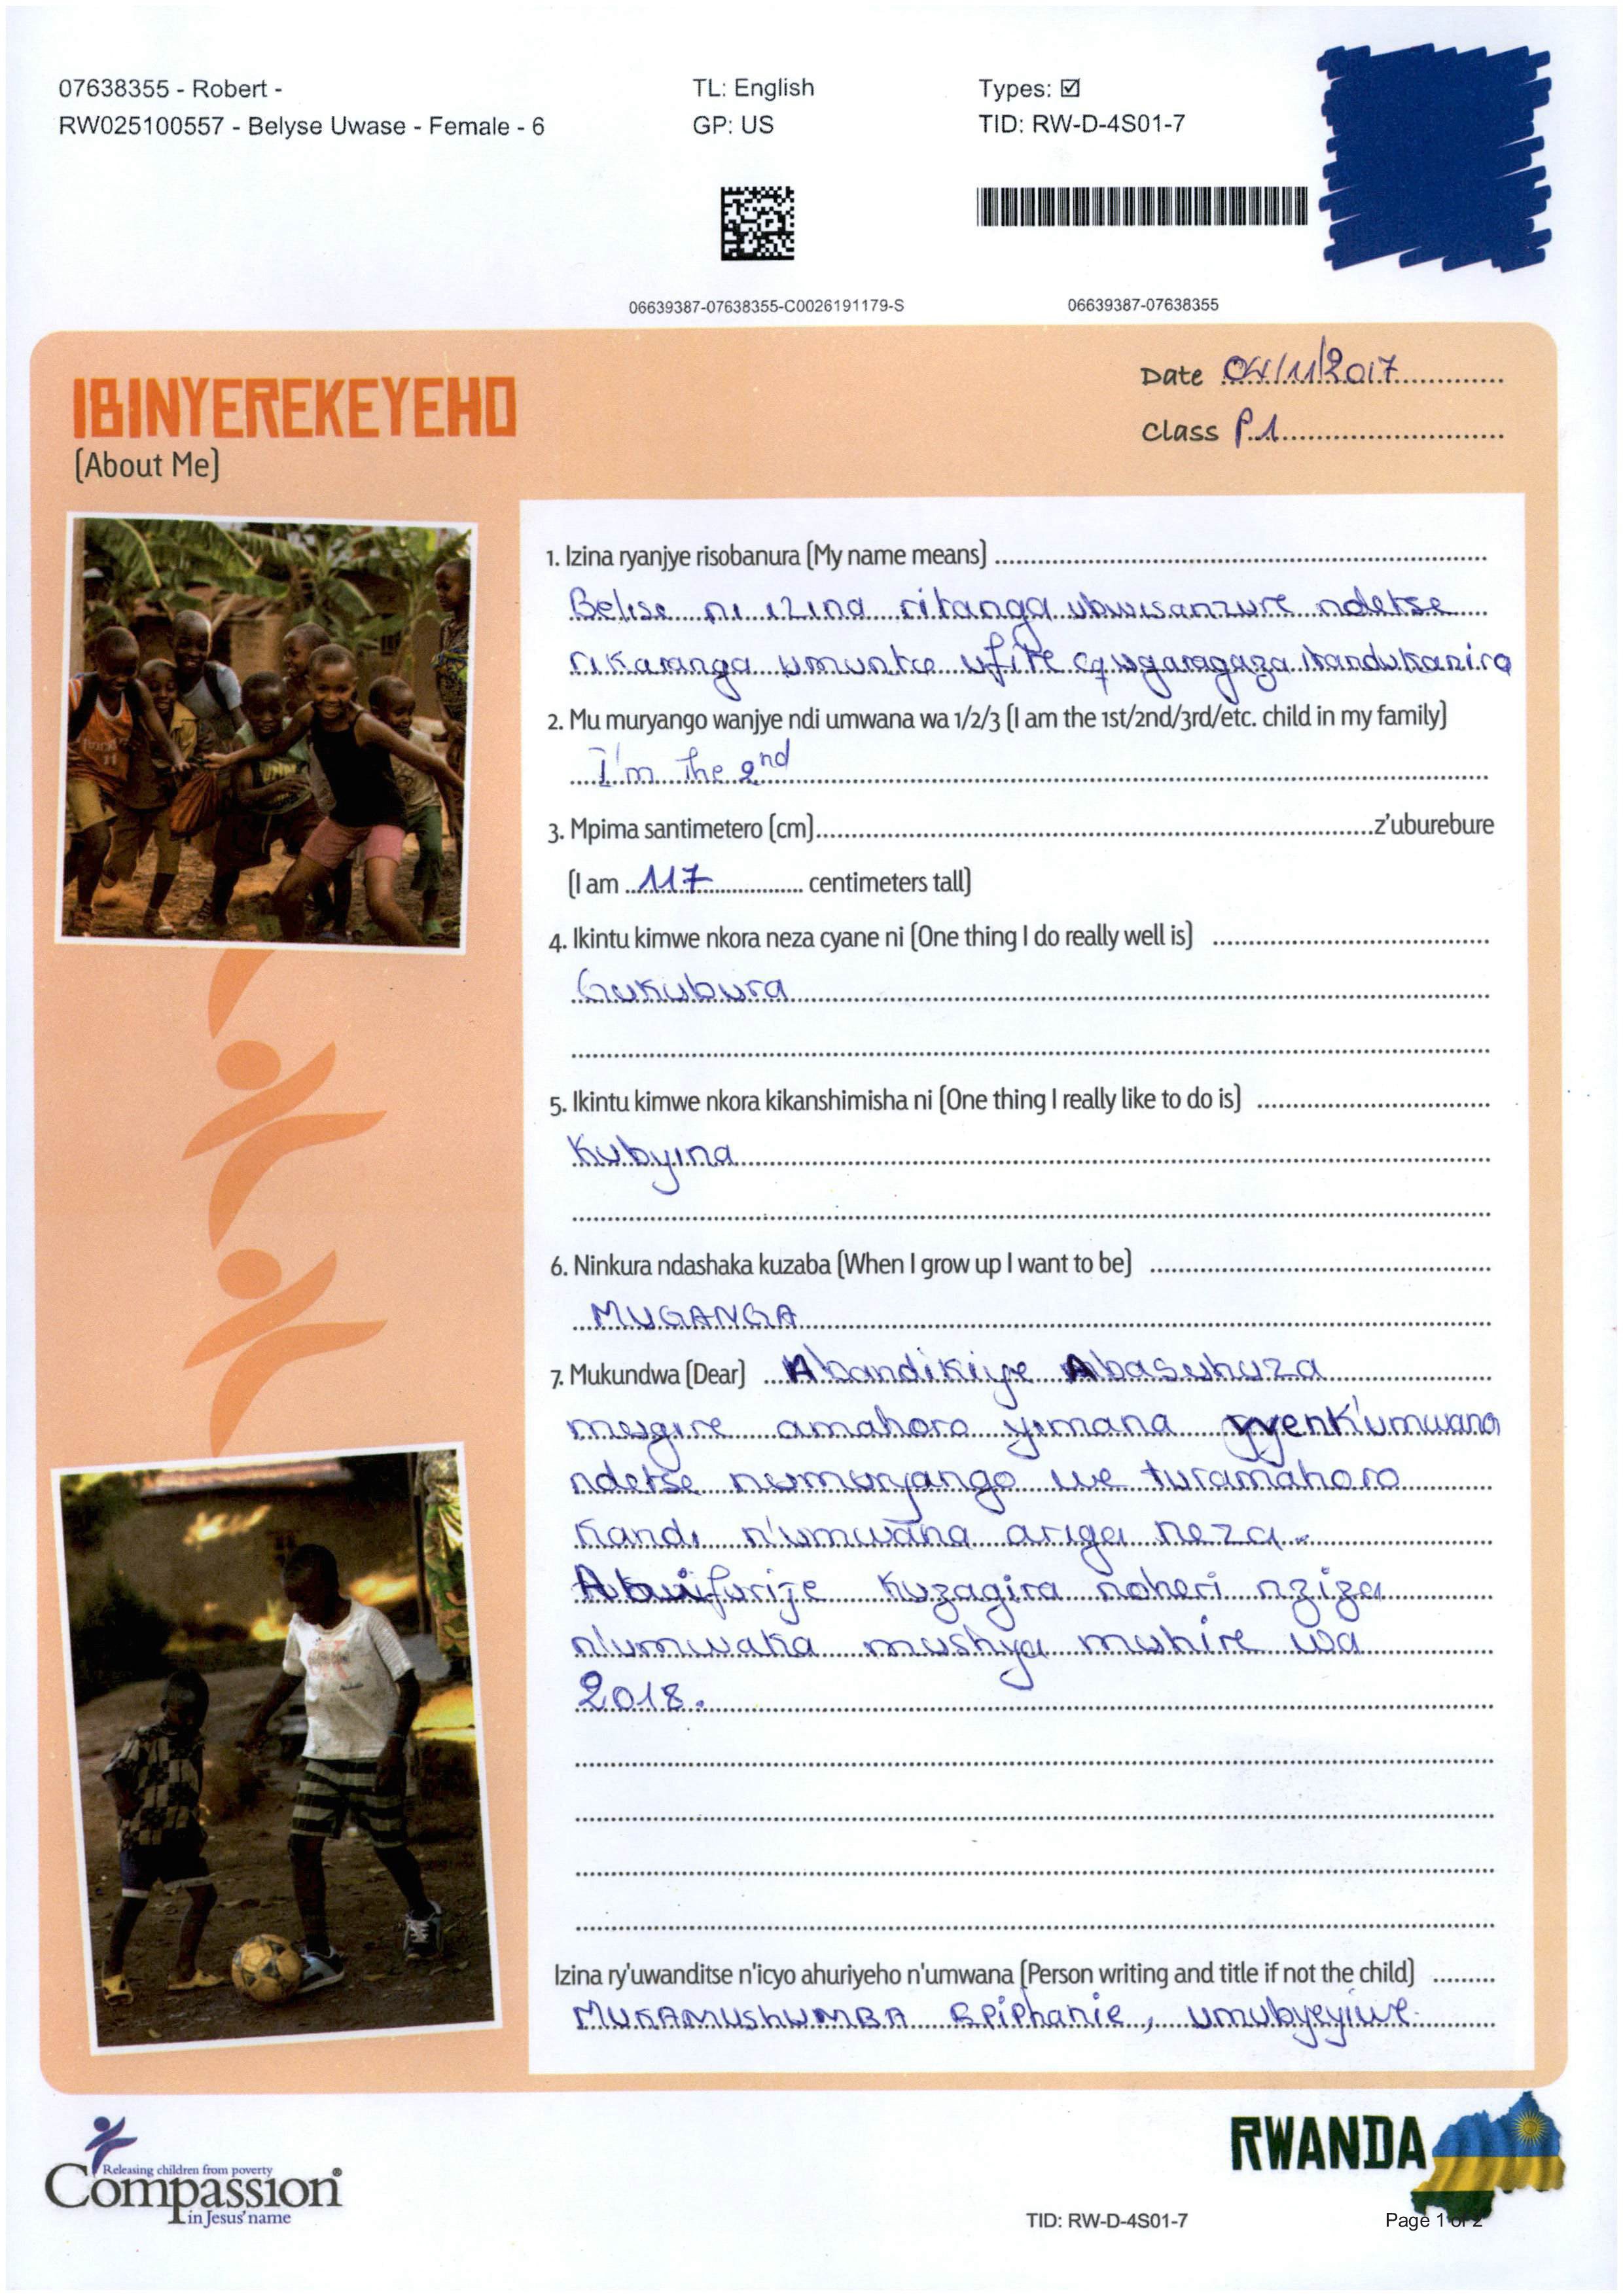 07638355 - Robert -
RW025100557 - Belyse Uwase - Female - 6
TL: English
GP: US
Types: ☑
TID: RW-D-4S01-7
06639387-07638355-C0026191179-S
06639387-07638355
IBINYEREKEYEHO
(About Me)
Date 04/11/2017
Class P.1
1. Izina ryanjye risobanura (My name means)
Belise ni izina ritanga ubwisanzure ndetse
rikaranga umuntu ufite ugaragaza itandukaniro
2. Mu muryango wanjye ndi umwana wa 1/2/3 (I am the 1st/2nd/3rd/etc. child in my family)
I'm the 2nd
3. Mpima santimetero (cm) z'uburebure
(I am 117 centimeters tall)
4. Ikintu kimwe nkora neza cyane ni (One thing I do really well is)
Gukubura
5. Ikintu kimwe nkora kikanshimisha ni (One thing I really like to do is)
Kubyina
6. Ninkura ndashaka kuzaba (When I grow up I want to be)
MUGANGA
7. Mukundwa (Dear) Abandikiye Abasuhuza
mugire amahoro yimana umwana
ndetse numuryango we turamahoro
kandi n'umwana ariga neza.
Abwifurije kuzagira noheri nziza
n'umwaka mushya muhire wa
2018.
Izina ry'uwanditse n'icyo ahuriyeho n'umwana (Person writing and title if not the child)
MUKAMUSHUMBA Epiphanie, umubyeyiwe.
Releasing children from poverty
Compassion®
in Jesus' name
RWANDA
TID: RW-D-4S01-7
Page 1 of 2